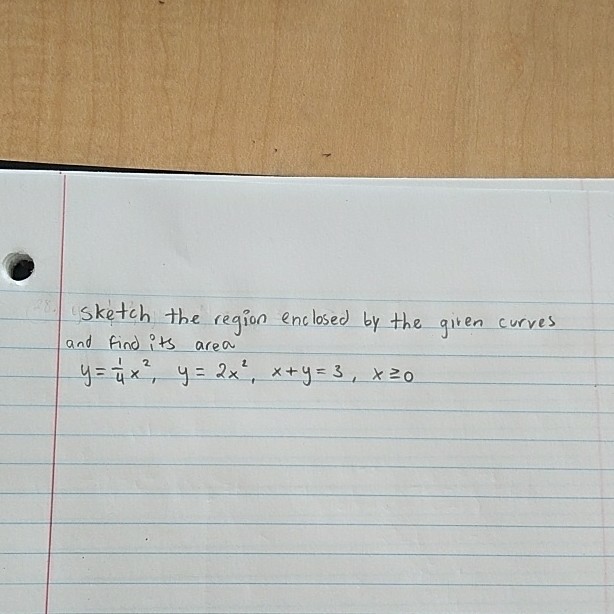 Sketch the region enclosed by the given curves
and find its area
y = 1/4 x², y = 2x², x+y=3, x≥0